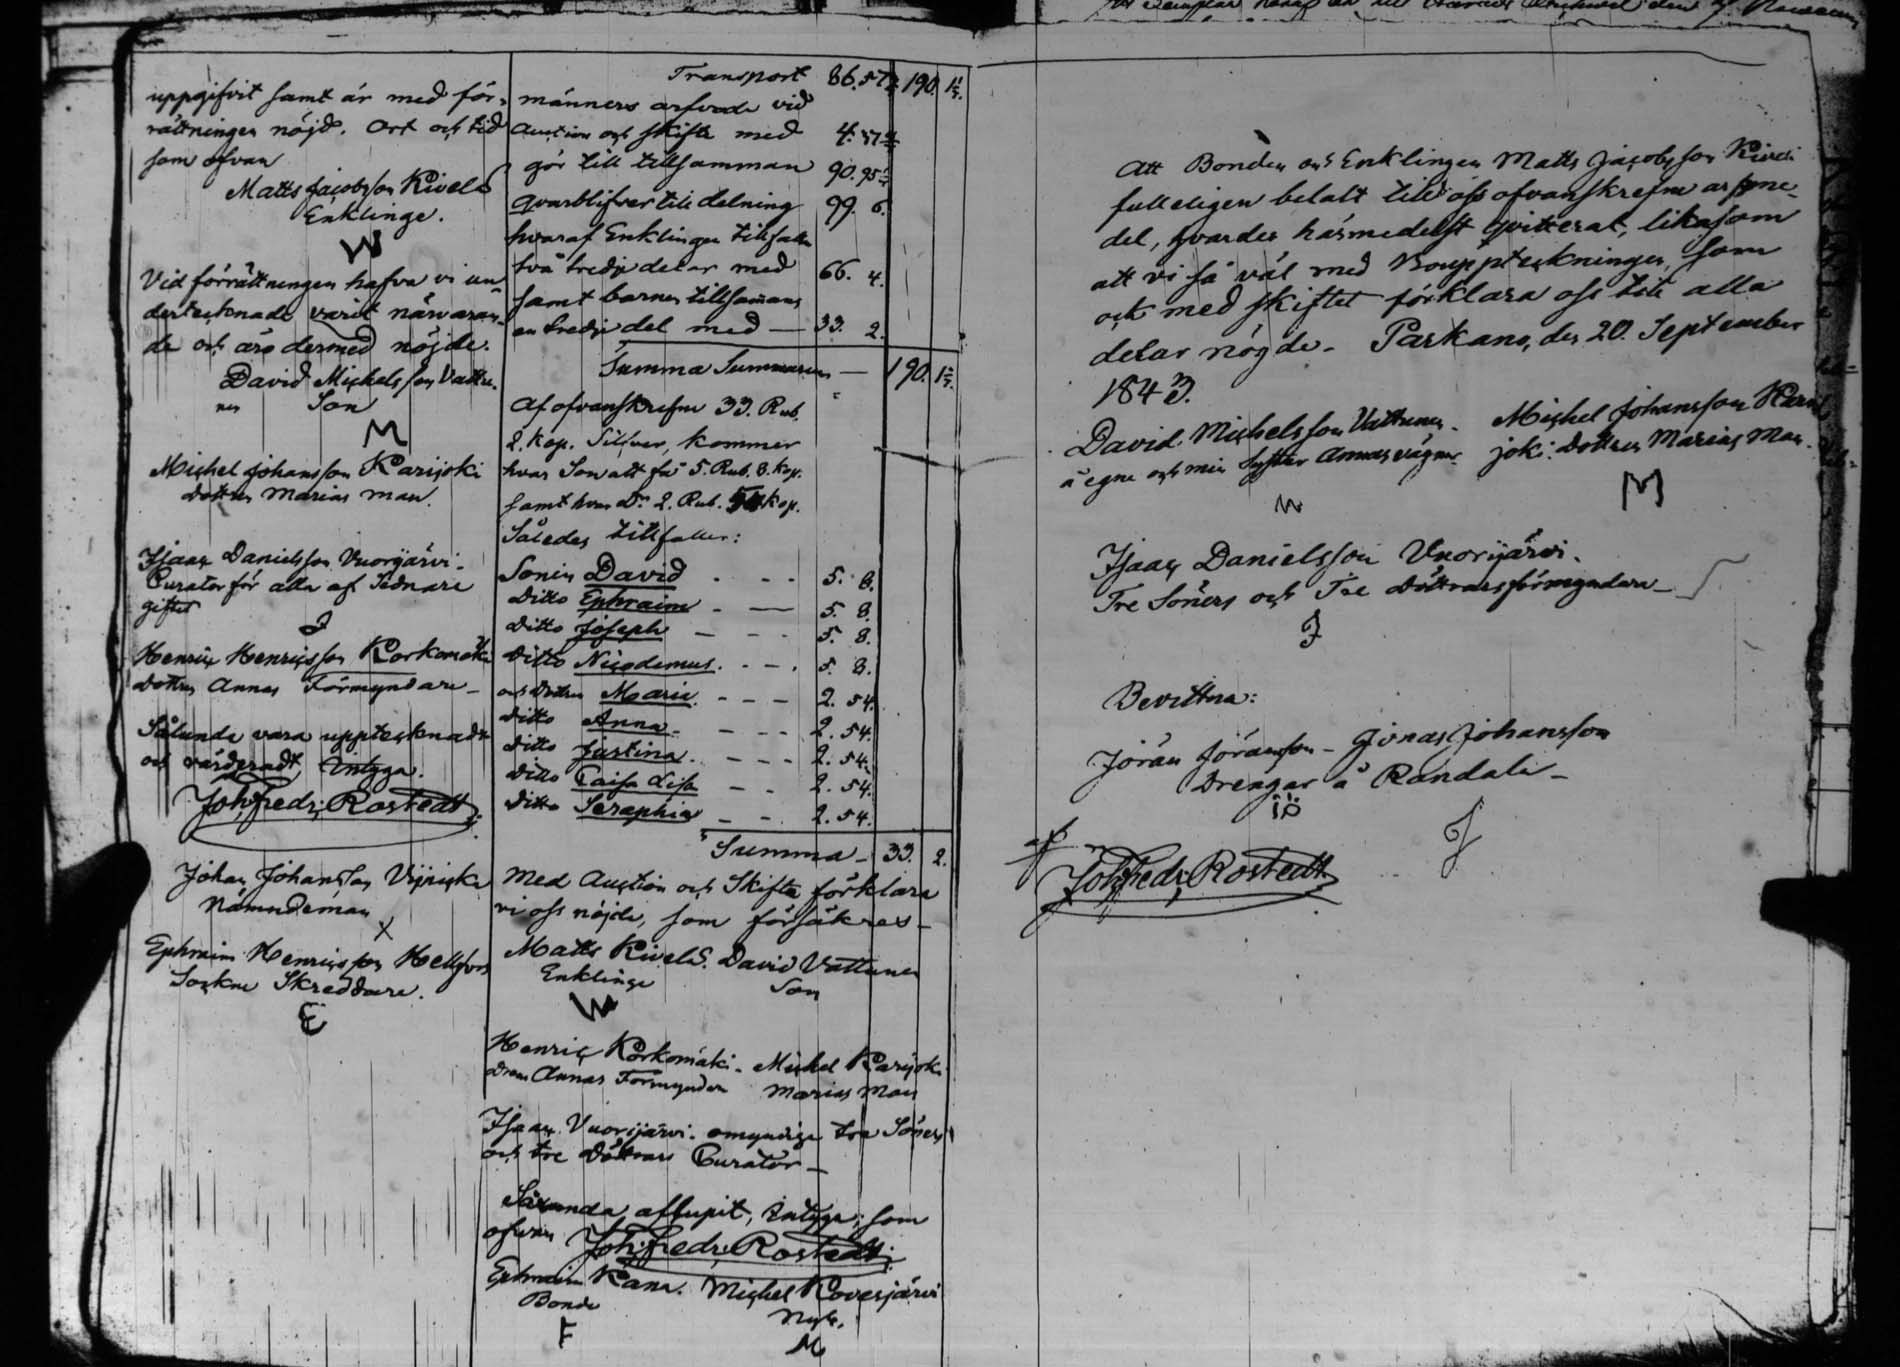 uppgifvit samt är med för-
rättningen nöjd. Ort och tid
som ofvan
Matts Jacobsson Kivelä
Enklinge.
Vid förrättningen hafva vi un-
dertecknade varit närvaran-
de och äro dermed nöjde.
David Michelsson Vattu-
nen Son
M
Michel Johansson Karijoki
Dottren Marias man.
Isaac Danielsson Vuorijärvi.
Curator för alla af sednare
giftet
J
Henric Henricsson Korkomäki
Dottren Annas Förmyndare
Sålunda vara upptecknadt
och värderadt, intyga.
Joh. Fredr. Rostedt
Johan Johansson
Nämndeman
X
Ephraim Henricsson Hellfors
Sockne Skreddare.
E
Transport 86. 57 190. 1
männers arfvode vid
Auction och skifte med 4. 37
gör till tillsamman 90. 95
qvarblifver till delning 99. 6.
hvaraf Enklingen tillfalla
två tredje delar med 66. 4.
samt barnen tillsamans
en tredje del med — 33. 2.
Summa Summarum — 190. 1
Af ofvanskrefne 33. Rub.
2. kop. Silfver, kommer
hvar Son att få 5. Rub. 8. kop.
samt hvar Dr. 2. Rub. 54 kop.
Således tillfaller:
Sonen David 5. 8.
Ditto Ephraim 5. 8.
Ditto Joseph 5. 8.
Ditto Nicodemus 5. 8.
och Dottren Maria 2. 54.
Ditto Anna 2. 54.
Ditto Justina 2. 54.
Ditto Caisa Lisa 2. 54.
Ditto Seraphia 2. 54.
Summa 33. 2.
Med Auction och Skifte förklara
vi oss nöjde, som försäkras
Matts Kivelä. David Vattunen
Enklinge Son
Henric Korkomäki. Michel Karijoki
Annas Förmyndare Marias Man
Isaac Vuorijärvi. omyndige tre Söners
och tre döttrars Curator
Sålunda aflupit, intyga; som
ofvan Joh. Fredr. Rostedt.
Ephraim Kana. Michel Kovesjärvi
Bonde
M
Att Bonden och Enklingen Matts Jacobsson Kivelä
fulleligen betalt till oss ofvanskrefne arfvne-
del, hvarder härmedelst qvitteras, likasom
att vi så väl med Bouppteckningen, som
ock med skiftet förklara oss till alla
delar nögde. Parkano, den 20. September
1843.
David Michelsson Vattunen. Michel Johansson Kari-
å egne och min Syster Annas vägnar. joki. Dottren Marias Man.
M
Isaac Danielsson Vuorijärvi.
Tre Söners och Tre Döttrars förmyndare
J
Bevittna:
Jöran Jöransson Jonas Johansson
Drengar å Randala
Joh. Fredr. Rostedt